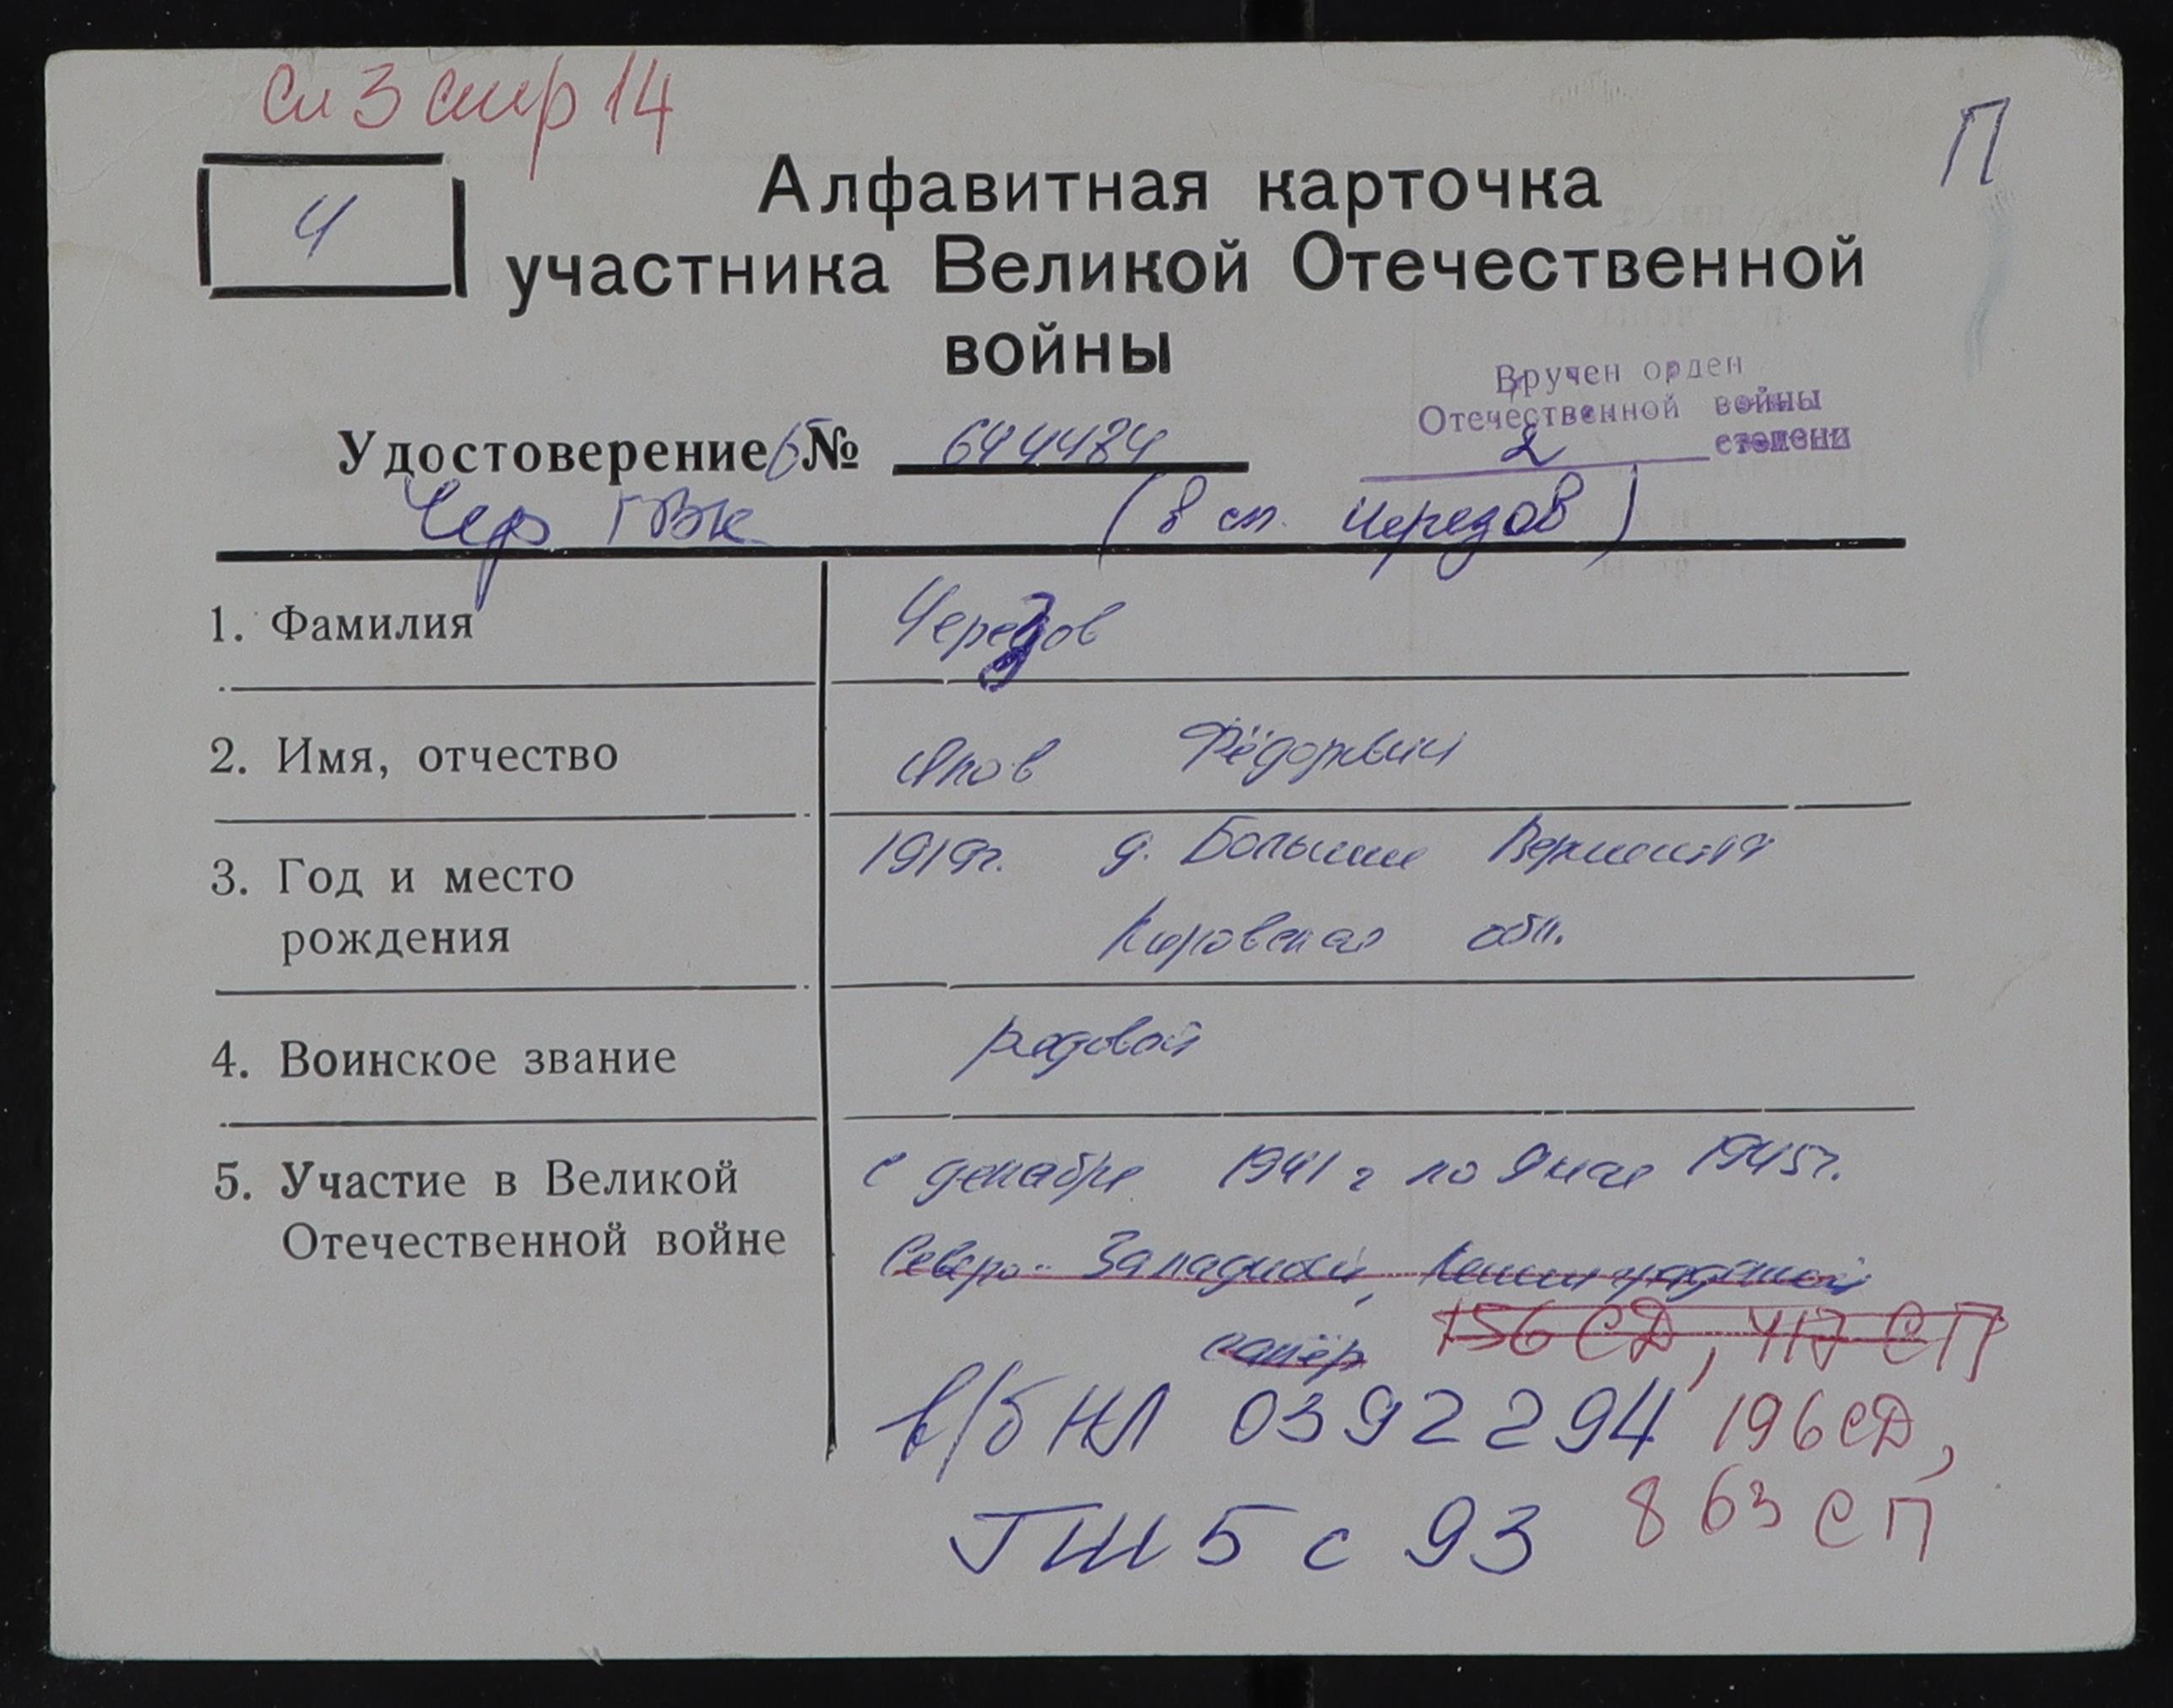 сп 3 стр 14
П
Ч
Алфавитная карточка
участника Великой Отечественной
войны
Вручен орден
Отечественной войны
2 степени
Удостоверение Б № 644484
Чер ГВК (в сп. Чередов)
1. Фамилия Черезов
2. Имя, отчество Яков Фёдорович
3. Год и место 1919г. д. Большие
рождения Кировская обл.
4. Воинское звание рядовой
5. Участие в Великой с декабря 1941 г по 9 мая 1945г.
Отечественной войне Северо-Западный, Ленинградский
сапёр 156 СД, 417 СП
в/б НЛ 0392294 196 СД,
ГШ 5 с 93 863 СП